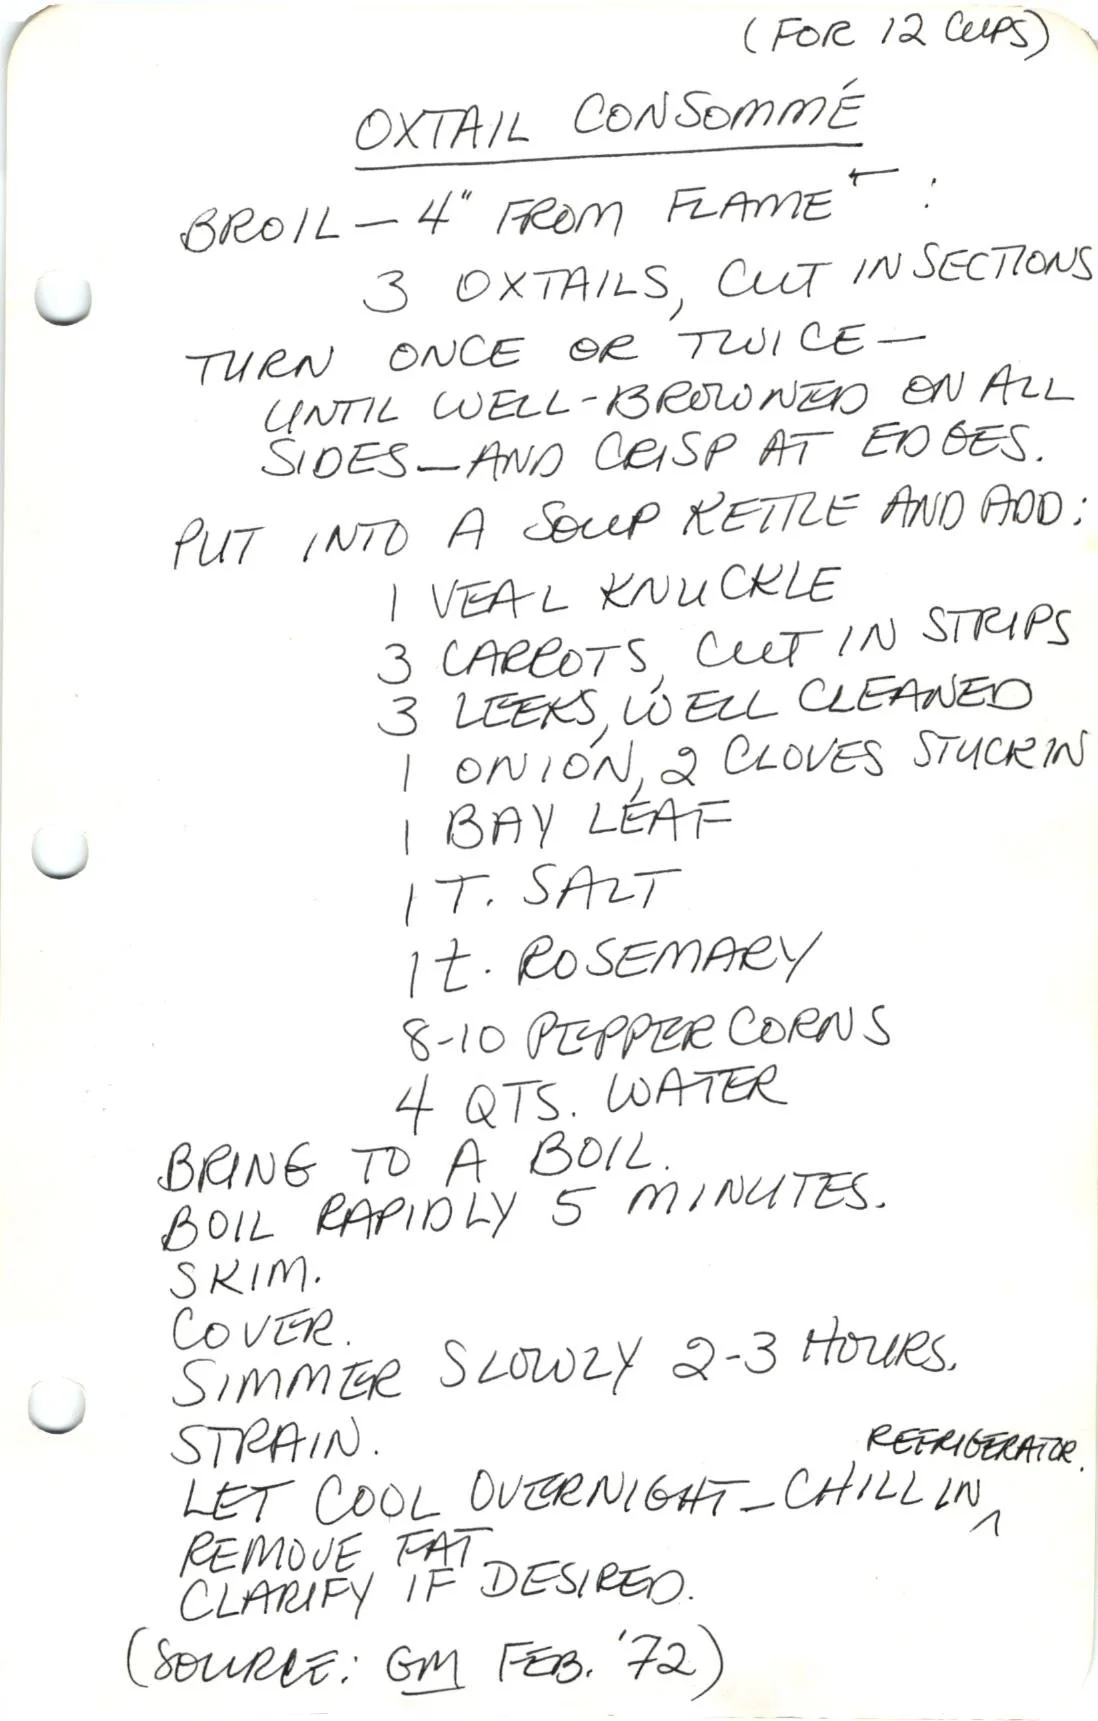 (FOR 12 CUPS)
OXTAIL CONSOMMÉ
BROIL — 4" FROM FLAME ← :
3 OXTAILS, CUT IN SECTIONS
TURN ONCE OR TWICE —
UNTIL WELL-BROWNED ON ALL
SIDES — AND CRISP AT EDGES.
PUT INTO A SOUP KETTLE AND ADD:
1 VEAL KNUCKLE
3 CARROTS, CUT IN STRIPS
3 LEEKS, WELL CLEANED
1 ONION, 2 CLOVES STUCK IN
1 BAY LEAF
1 T. SALT
1 t. ROSEMARY
8-10 PEPPERCORNS
4 QTS. WATER
BRING TO A BOIL.
BOIL RAPIDLY 5 MINUTES.
SKIM.
COVER.
SIMMER SLOWLY 2-3 HOURS.
STRAIN.
LET COOL OVERNIGHT — CHILL IN REFRIGERATOR.
REMOVE FAT
CLARIFY IF DESIRED.
(SOURCE: GM FEB. '72)